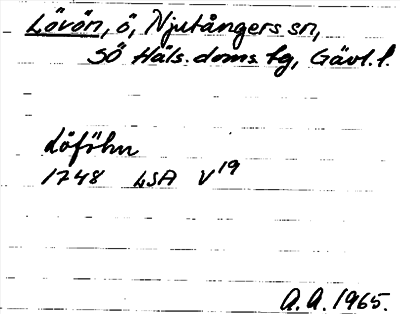 Lövön, ö, Njutångers sn,
SÖ Häls. doms. tg, Gävl. l.
Löföhn
1748 LSA V19
A. A. 1965.